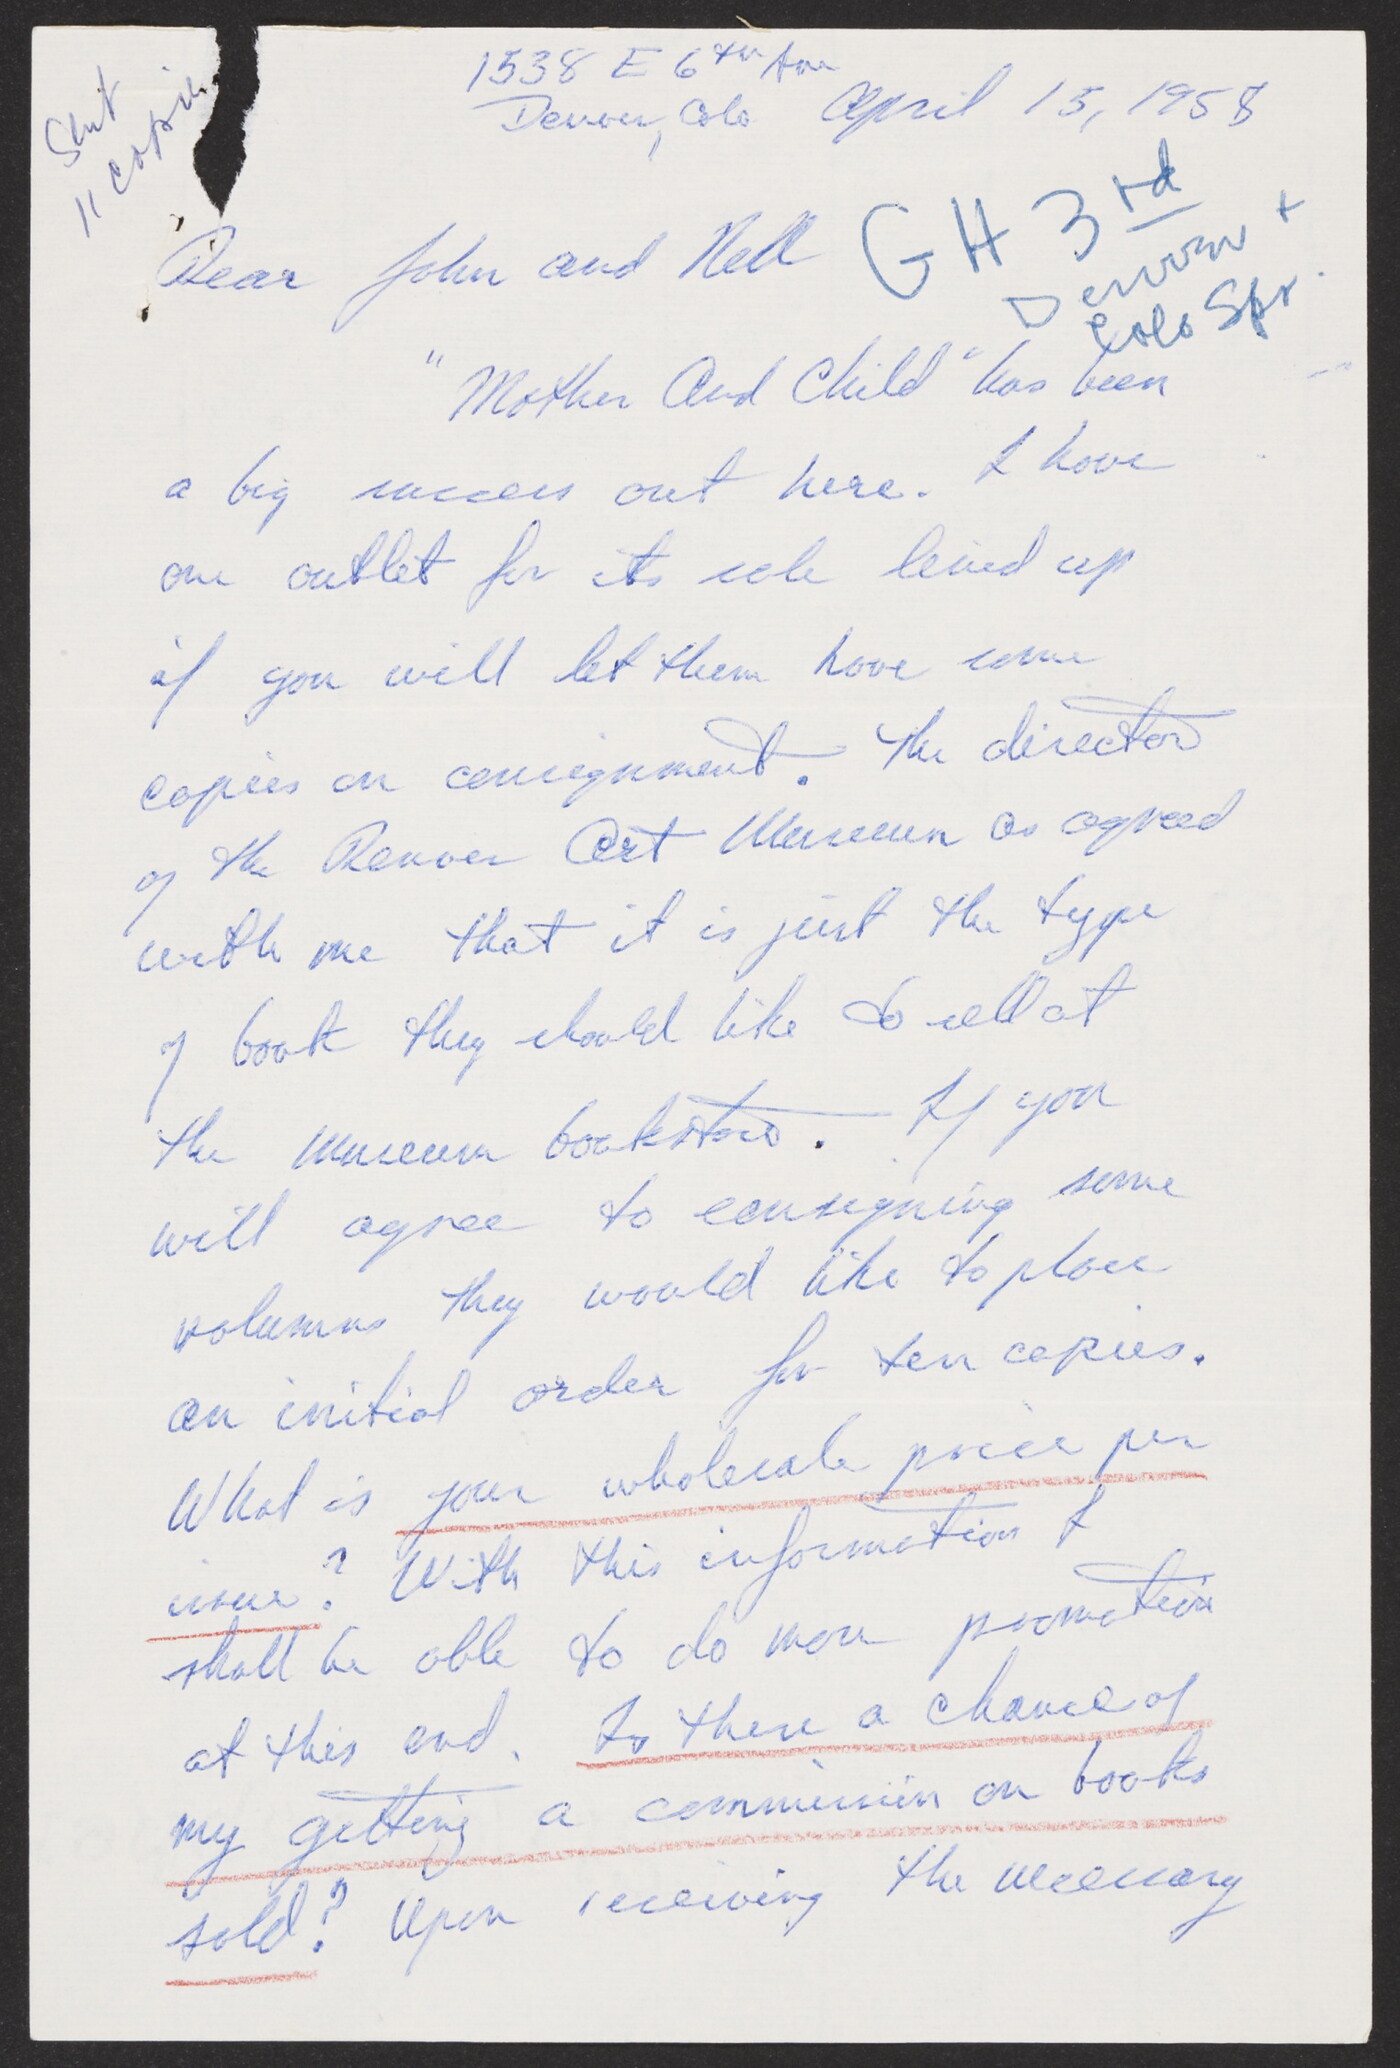 Sent
11 copies
1538 E 6th Ave
Denver, Colo April 15, 1958
GH 3rd
Denver +
Colo Spr.
Dear John and Nell
"Mother And Child" has been
a big success out here. I have
one outlet for its sale lined up
if you will let them have some
copies on consignment. The director
of the Denver Art Museum as agreed
with me that it is just the type
of book they should like to sell at
the Museum bookstore. If you
will agree to consigning some
volumns they would like to place
an initial order for ten copies.
What is your wholesale price per
issue? With this information I
shall be able to do more promotion
at this end. Is there a chance of
my getting a commission on books
sold? Upon receiving the necessary